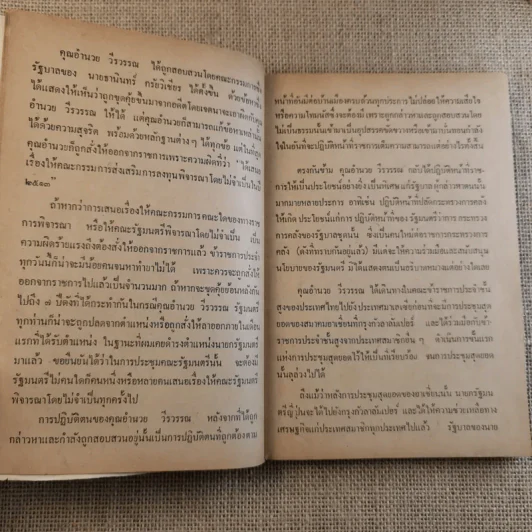 คุณอำนวย วีรวรรณ ได้ถูกสอบสวนโดยคณะกรรมการซึ่ง
รัฐบาลของ นายธานินทร์ กรัยวิเชียร ได้ตั้งขึ้น ด้วยข้อหาซึ่ง
ได้แสดงให้เห็นว่าถูกขุดคุ้ยขึ้นมาจากอดีตโดยเจตนาจะเอาผิดกับคุณ
อำนวย วีรวรรณ ให้ได้ แต่คุณอำนวยก็สามารถแก้ข้อหาเหล่านั้น
ได้ด้วยความสุจริต พร้อมด้วยหลักฐานต่างๆ ได้ทุกข้อ แต่ในที่สุด
คุณอำนวยก็ถูกสั่งให้ออกจากราชการเพราะความผิดที่ว่า "ได้เสนอ
เรื่องให้คณะกรรมการส่งเสริมการลงทุนพิจารณาโดยไม่จำเป็นในปี
๒๕๑๓"
ถ้าหากว่าการเสนอเรื่องให้คณะกรรมการคณะใดของทางราช
การพิจารณา หรือให้คณะรัฐมนตรีพิจารณาโดยไม่จำเป็น เป็น
ความผิดร้ายแรงถึงต้องสั่งให้ออกจากราชการแล้ว ข้าราชการประจำ
ทุกวันนี้ก็น่าจะมีน้อยคนจนหาทำยาไม่ได้ เพราะควรจะถูกสั่งให้
ออกจากราชการไปแล้วเป็นจำนวนมาก ถ้าหากจะขุดคุ้ยย้อนหลังกัน
ไปถึง ๗ ปีดังที่ได้กระทำกันในกรณีคุณอำนวย วีรวรรณ รัฐมนตรี
ทุกท่านก็น่าจะถูกปลดจากตำแหน่งหรือถูกสั่งให้ลาออกภายในเดือน
แรกที่ได้รับตำแหน่ง ในฐานะที่ผมเคยดำรงตำแหน่งนายกรัฐมนตรี
มาแล้ว ขอยืนยันได้ว่าในการประชุมคณะรัฐมนตรีนั้น จะต้องมี
รัฐมนตรีไม่คนใดก็คนหนึ่งหรือหลายคนเสนอเรื่องให้คณะรัฐมนตรี
พิจารณาโดยไม่จำเป็นทุกครั้งไป
การปฏิบัติตนของคุณอำนวย วีรวรรณ หลังจากที่ได้ถูก
กล่าวหาและกำลังถูกสอบสวนอยู่นั้นเป็นการปฏิบัติตนที่ถูกต้องตาม
หน้าที่อันมีต่อบ้านเมืองครบถ้วนทุกประการ ไม่ปล่อยให้ความเสียใจ
หรือความโทมนัสซึ่งจะต้องมี เพราะถูกกล่าวหาและถูกสอบสวนโดย
ไม่เป็นธรรมนั้นเข้ามาเป็นอุปสรรคขัดขวางหรือเข้ามาบั่นทอนกำลัง
ใจในอันที่จะปฏิบัติหน้าที่ราชการให้เต็มความสามารถแต่อย่างไรทั้งสิ้น
ตรงกันข้าม คุณอำนวย วีรวรรณ กลับได้ปฏิบัติหน้าที่ราช
การให้เป็นประโยชน์อย่างยิ่ง เป็นพิเศษแก่รัฐบาลดังกล่าวตลอดมา
มากมายหลายประการ อาทิเช่น ปฏิบัติหน้าที่ปลัดกระทรวงการคลัง
ให้เกิด ประโยชน์แก่การ ปฏิบัติหน้าที่ของ รัฐมนตรีว่าการ กระทรวง
การคลัง ของรัฐบาลชุดนั้น ซึ่งเป็นคนใหม่ต่อราชการกระทรวงการ
คลัง (ดังที่ทราบกันอยู่แล้ว) มีแต่จะให้ความร่วมมือและสนับสนุน
นโยบายของรัฐมนตรี มิได้แสดงตนเป็นอริบาดหมางแต่อย่างใดเลย
คุณอำนวย วีรวรรณ ได้เดินทางในคณะข้าราชการประจำชั้น
สูงของประเทศไทยไปยังประเทศมาเลเซียก่อนที่จะมีการประชุมสุด
ยอดของสมาคมอาเซียนที่กรุงกัวลาลัมเปอร์ และได้ร่วมมือกับข้า
ราชการประจำชั้นสูงจากประเทศสมาชิกอื่นๆ ดำเนินการขั้นแรก
แห่งการประชุมสุดยอดไว้ให้เป็นที่เรียบร้อย จนการประชุมสุดยอด
นั้นลุล่วงไปได้
ถึงแม้ว่าหลังการประชุมสุดยอดของอาเซียนนั้น นายกรัฐมน
ตรีญี่ปุ่นจะได้ไปยังกรุงกัวลาลัมเปอร์ และได้ให้ความช่วยเหลือทาง
เศรษฐกิจแก่ประเทศสมาชิกทุกประเทศไปแล้ว รัฐบาลของนาย